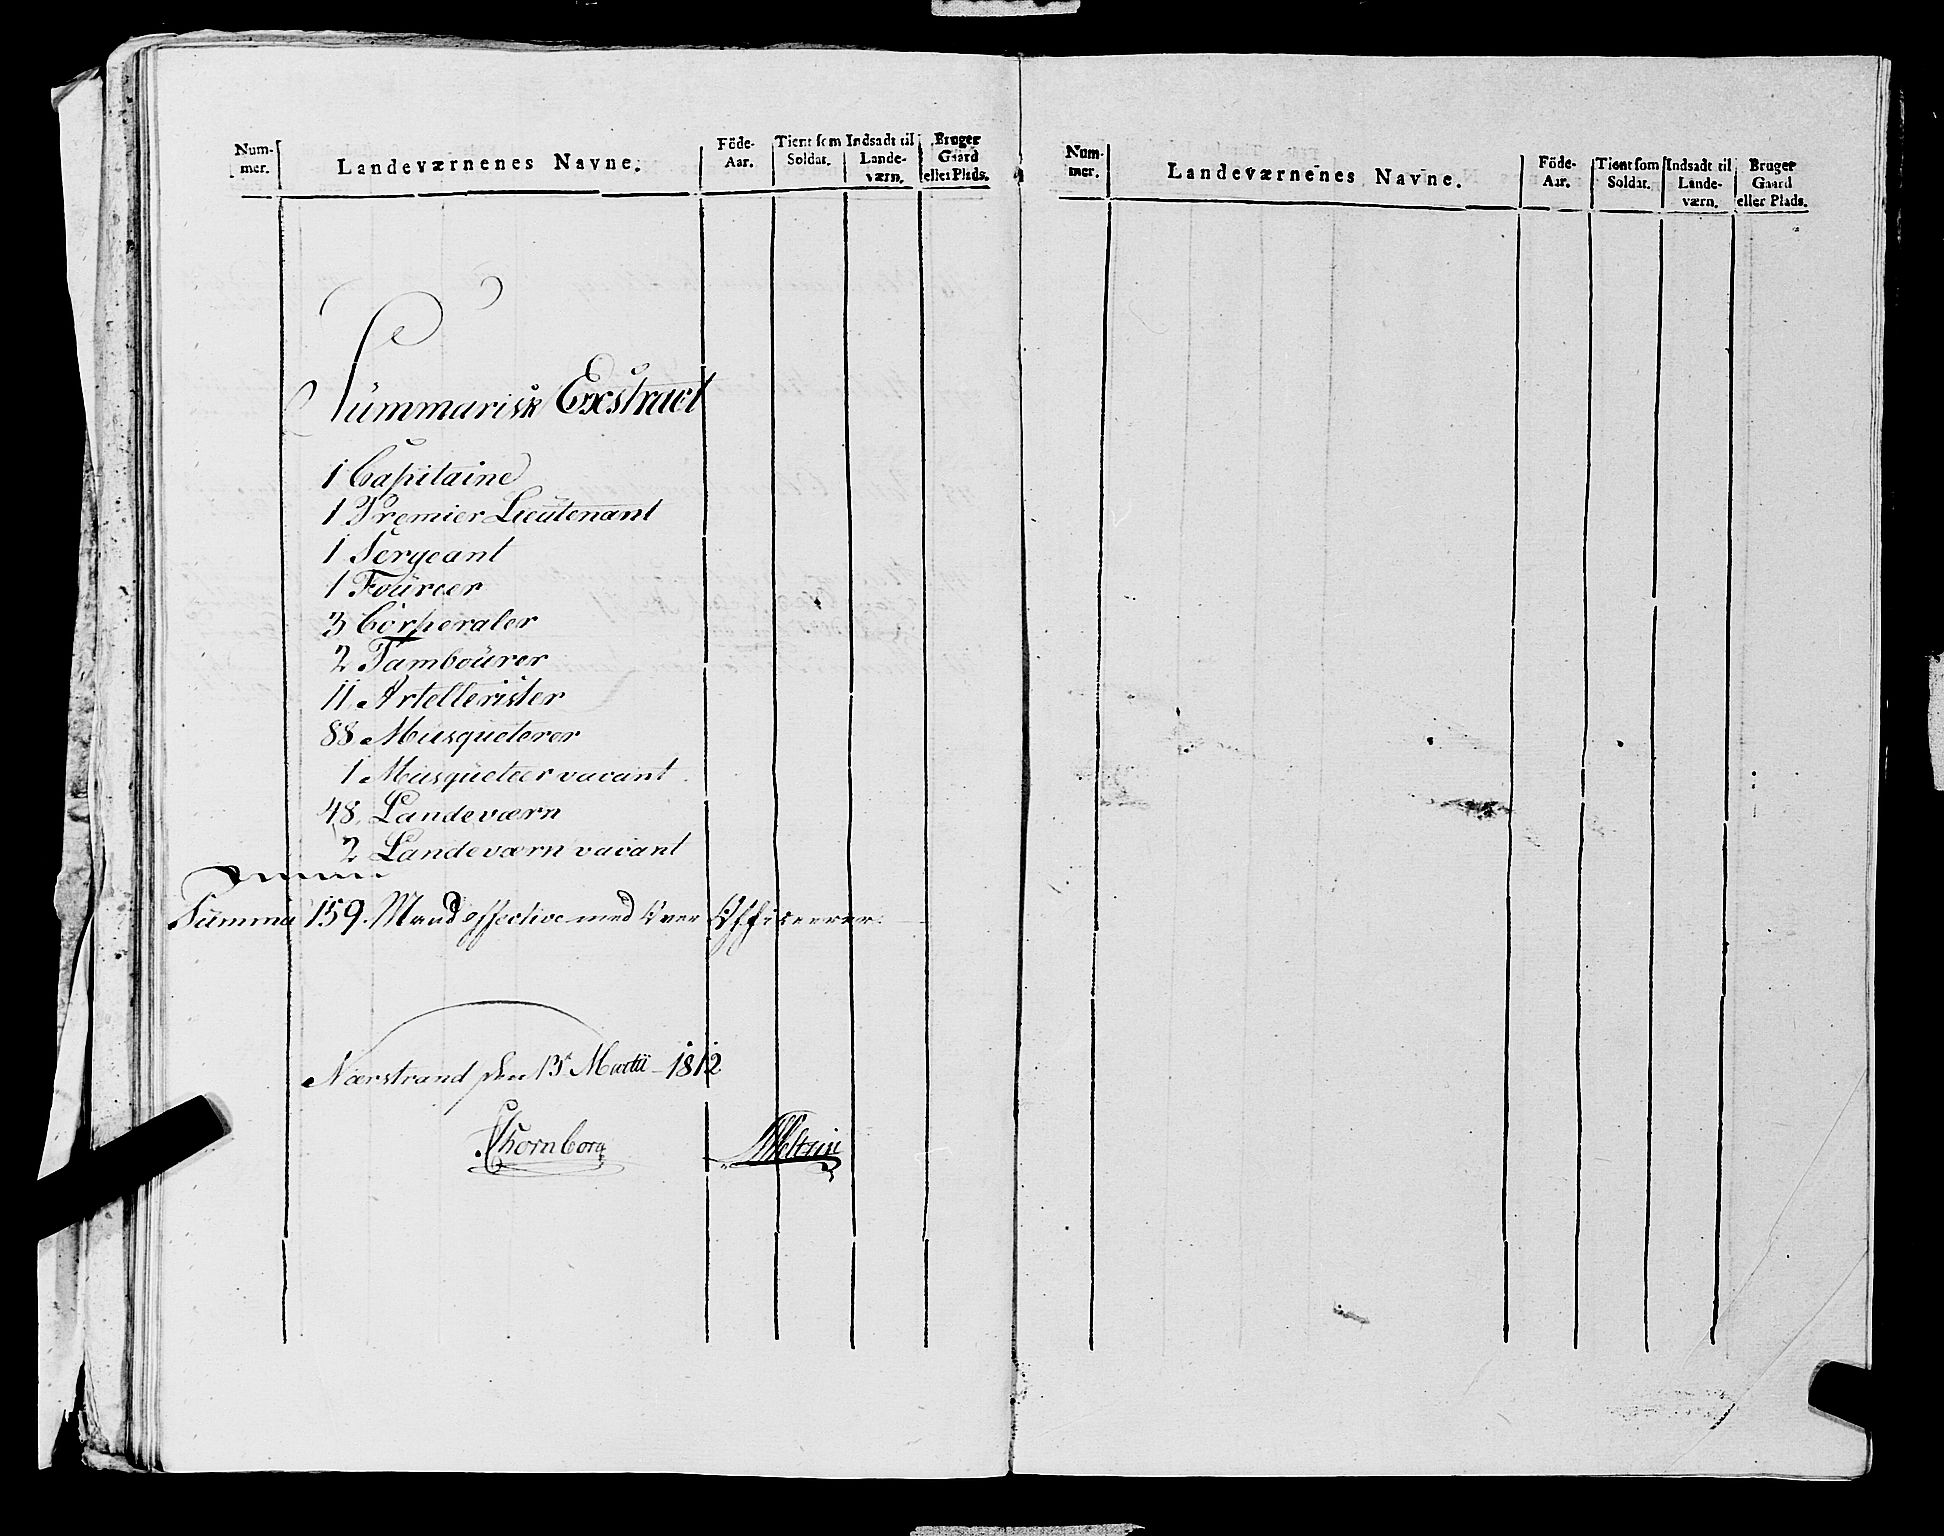 Num-
mer.
Landeværnenes Navne.
Föde-
Aar.
Tient som
Soldat.
Indsadt til
Lande-
værn.
Bruger
Gaard
eller Plads.
Summarisk Exstract
1 Capitaine
1 Premier Lieutenant
1 Sergeant
1 Foureer
3 Corperaler
2 Tambourer
11 Artellerister
88 Musqueterer
1 Musqueteer vacant
48 Landeværn
2 Landeværn vacant
Summa 159. Mand effective med Over Officerer.
Nærstrand den 13 Martii 1812
Thornborg
Num-
mer.
Landeværnenes Navne.
Föde-
Aar.
Tient som
Soldat.
Indsadt til
Lande-
værn.
Bruger
Gaard
eller Plads.